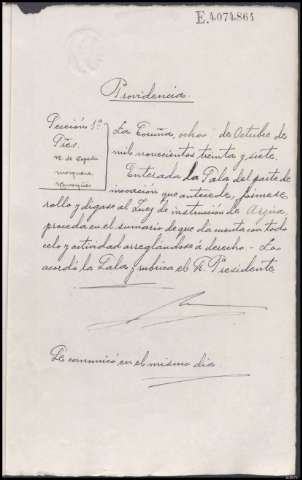 E.4074864
Providencia
Sección 1ª
Sres.
La Coruña, ocho de Octubre de
mil novecientos treinta y siete.
Enterada la Sala del parte de
incoación que antecede, fórmese
rollo y dígase al Juez de instrucción de
proceda en el sumario de que da cuenta con todo
celo y actividad arreglándose a derecho - Lo
acordó la Sala y rubrica el Sr. Presidente
Se comunicó en el mismo día.